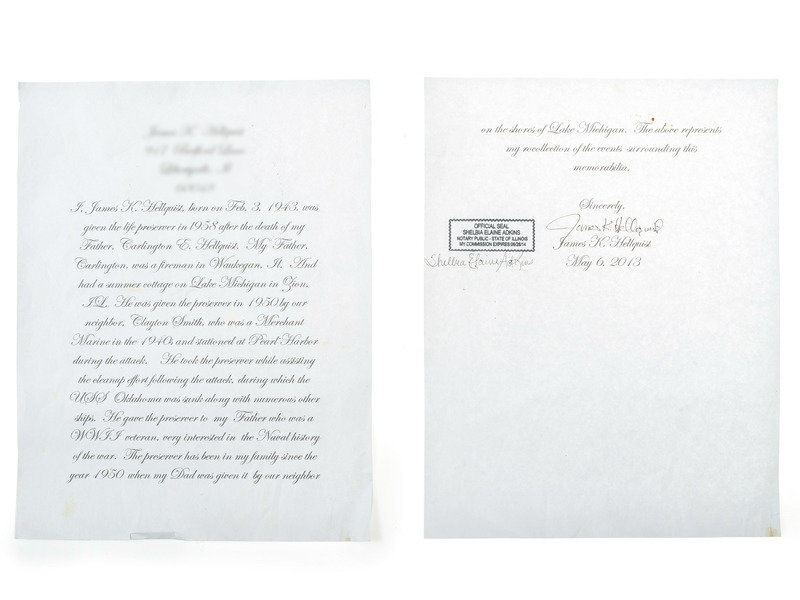 I, James K. Hellquist, born on Feb. 3, 1943, was
given the life preserver in 1958 after the death of my
Father, Carlington E. Hellquist. My Father,
Carlington, was a fireman in Waukegan, Il. And
had a summer cottage on Lake Michigan in Zion,
IL. He was given the preserver in 1950 by our
neighbor, Clayton Smith, who was a Merchant
Marine in the 1940s and stationed at Pearl Harbor
during the attack. He took the preserver while assisting
the cleanup effort following the attack, during which the
USS Oklahoma was sunk along with numerous other
ships. He gave the preserver to my Father who was a
WWII veteran, very interested in the Naval history
of the war. The preserver has been in my family since the
year 1950 when my Dad was given it by our neighbor
on the shores of Lake Michigan. The above represents
my recollection of the events surrounding this
memorabilia.
Sincerely,
James K Hellquist
James K. Hellquist
May 6, 2013
OFFICIAL SEAL
SHELBIA ELAINE ADKINS
NOTARY PUBLIC - STATE OF ILLINOIS
MY COMMISSION EXPIRES 06/28/14
Shelbia Elaine Adkins